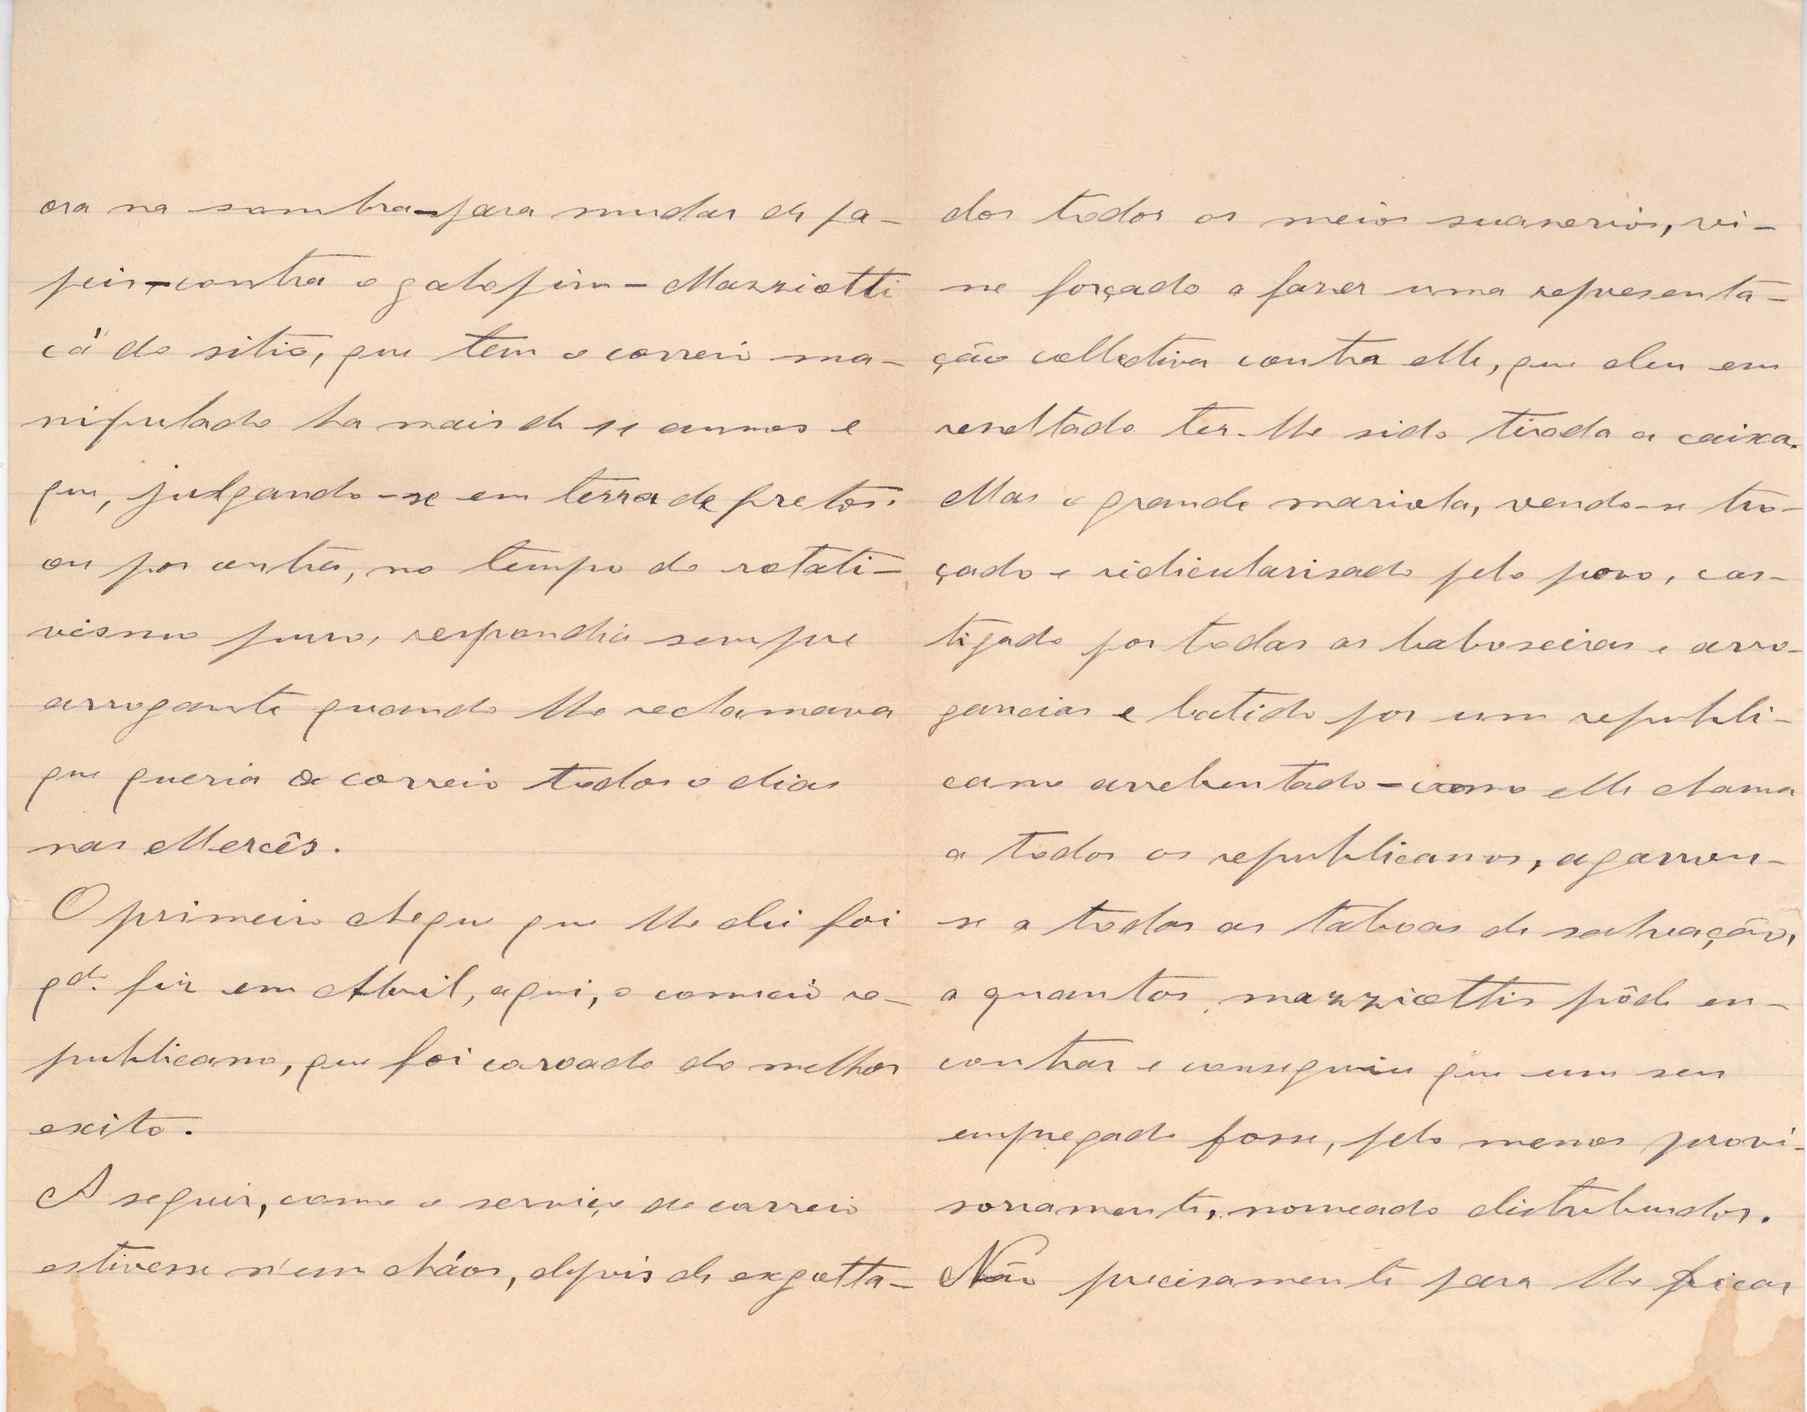 ora na sombra—para mudar de pa-
peis—contra o galopim—Mazziotti
cá do sitio, que tem o correio ma-
nipulado ha mais de 11 annos e
que, julgando-se em terra de pretos,
ou por outra, no tempo do rotati-
vismo puro, respondia sempre
arrogante quando lhe reclamava
que queria o correio todos o dias
nas Mercês.
O primeiro cheque que lhe dei foi
qdo. fiz em Abril, aqui, o comicio re-
publicano, que foi coroado do melhor
exito.
A seguir, como o serviço do correio
estivesse n'um cháos, depois de exgotta-
dos todos os meios suasorios, vi-
me forçado a fazer uma representa-
ção collectiva contra elle, que deu em
resultado ter-lhe sido tirada a caixa.
Mas o grande mariola, vendo-se tro-
çado e ridicularisado pelo povo, cas-
tigado por todas as baboseiras e arro-
gancias e batido por um republi-
cano arrebentado—como elle chama
a todos os republicanos, agarrou-
se a todas as taboas de salvação,
a quantos mazziottis pôde en-
contrar e conseguiu que um seu
empregado fosse, pelo menos provi-
soriamente, nomeado distribuidor.
Não precisamente para lhe ficar